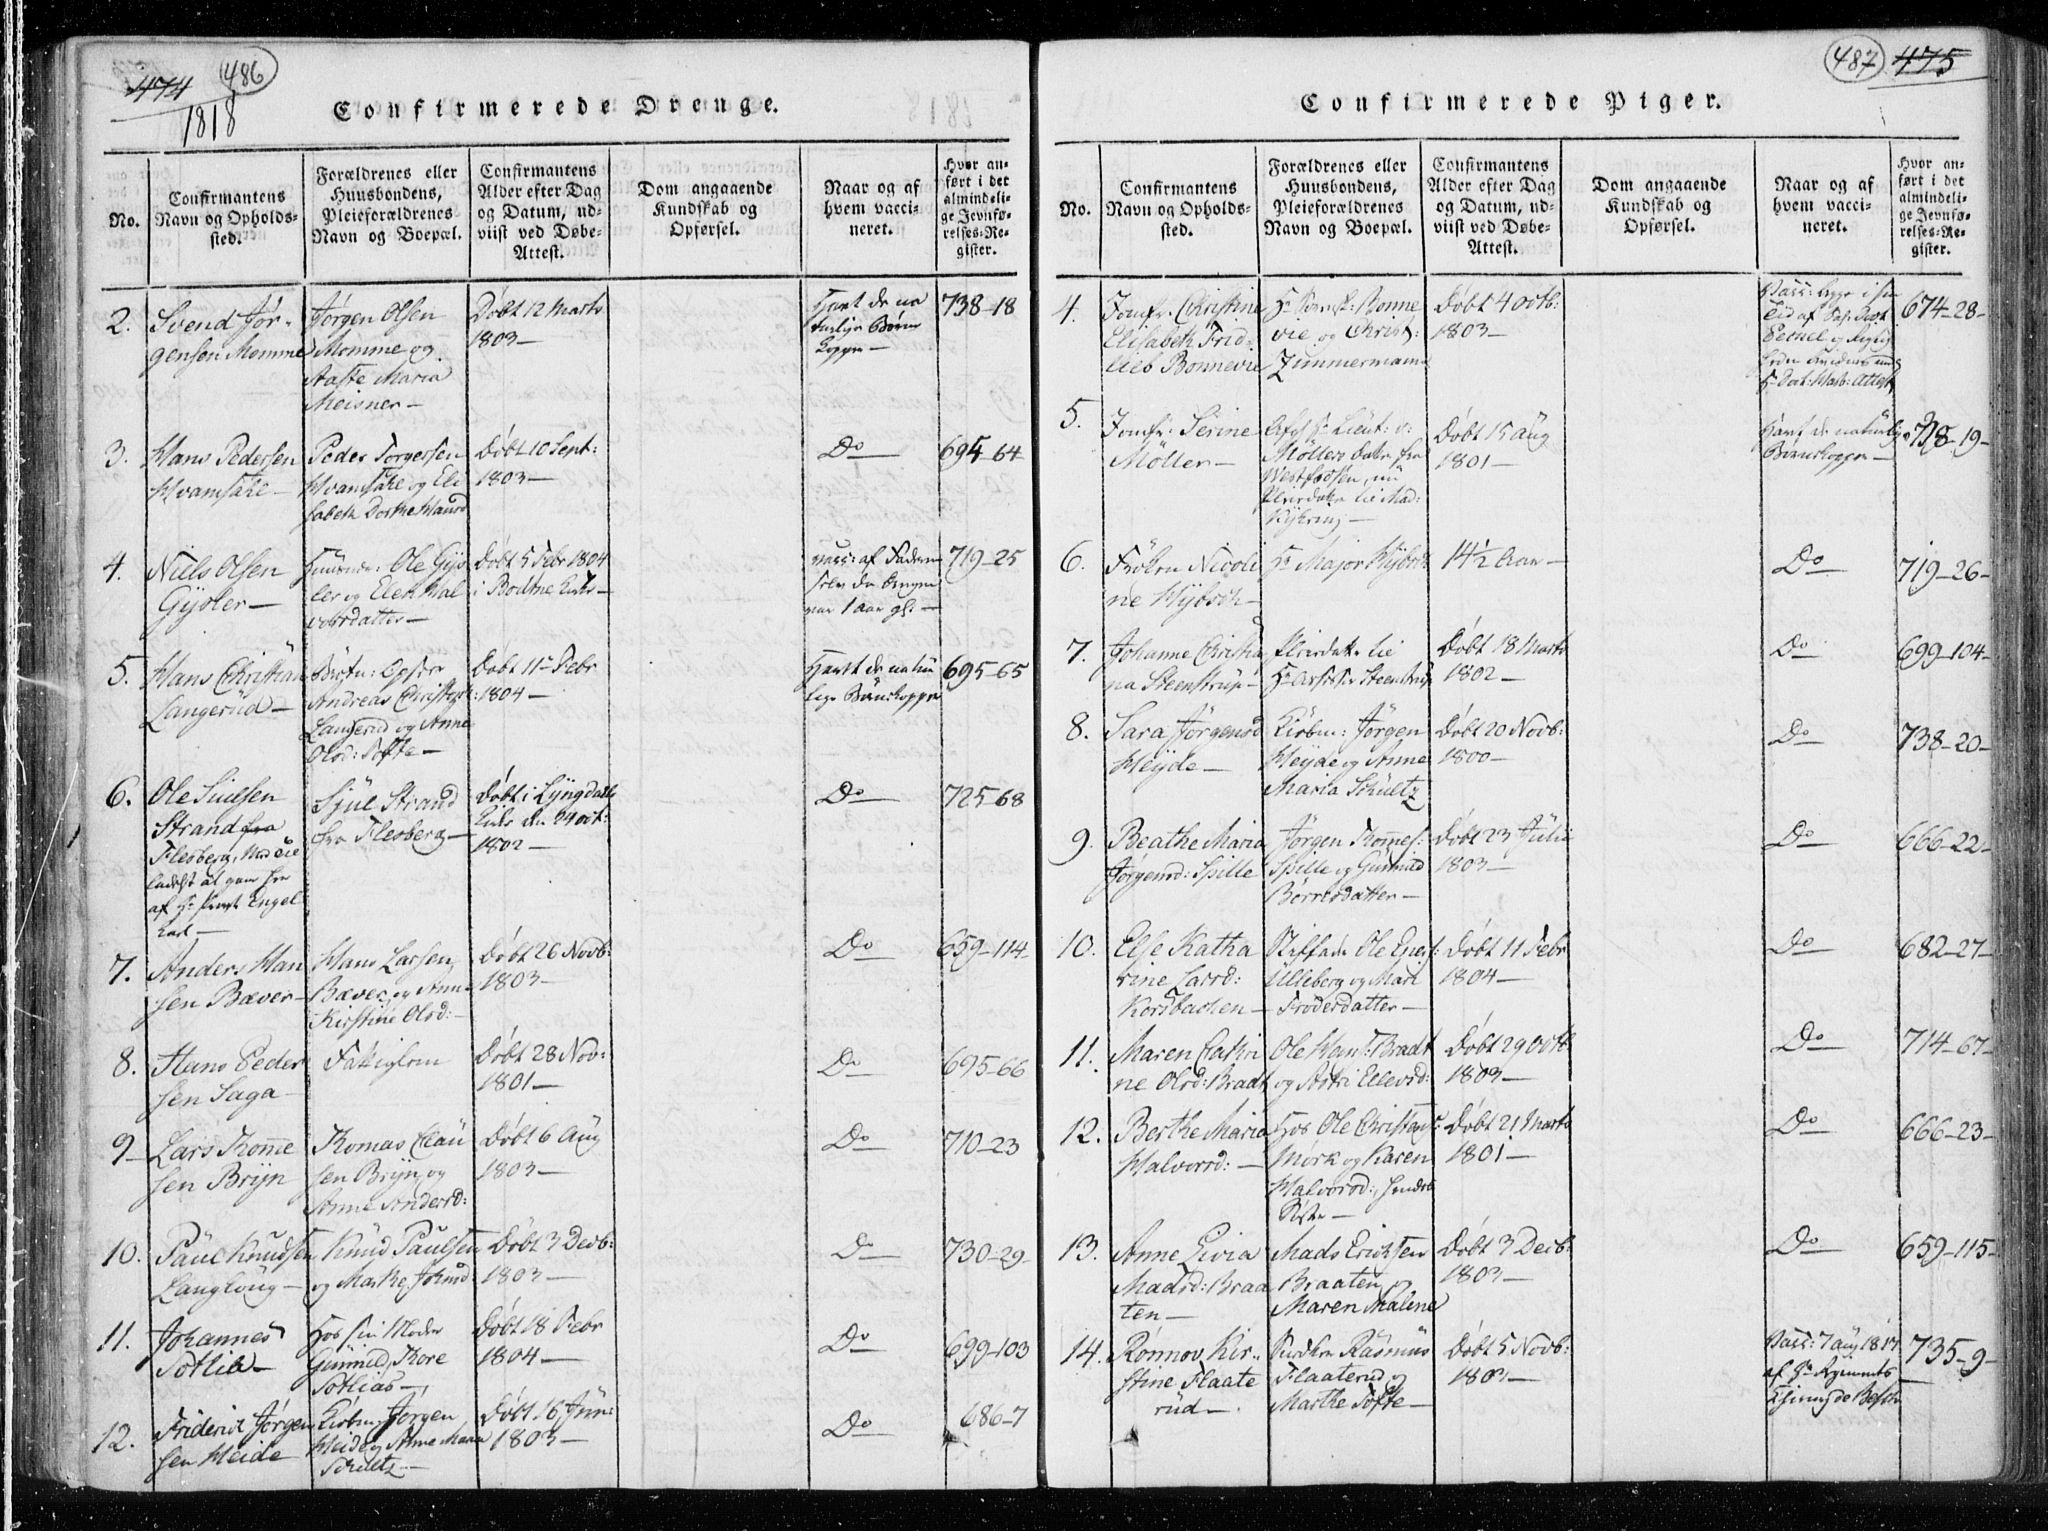 474
486
1818
Confirmerede Drenge.
No.
Confirmantens
Navn og Opholds-
sted.
Forældrenes eller
Huusbondens,
Pleieforældrenes
Navn og Boepæl.
Confirmantens
Alder efter Dag
og Datum, ud-
viist ved Døbe-
Attest.
Dom angaaende
Kundskab og
Opførsel.
Naar og af
hvem vacci-
neret.
Hvor an-
ført i det
almindeli-
ge Jevnfø-
relses-Re-
gister.
2.
Svend Jør-
gensen Momme
Jørgen Olsen
Momme og
Aaste Maria
Meisner
Døbt 12 Marts
1803
Havt de na
turlige Børne
kopper
738-18
3.
Hans Pedersen
Hvamsahl
Peder Torgersen
Hvamsahl og Eli
sabeth Dorthe
Døbt 10 Sept:
1803
Do
694-64
4.
Niels Olsen
Ole
og Elen Hal
vorsdatter
Døbt 5 Febr 1804
vacc: af Faderen
selv da Drengen
var 1 aar gl:
719-25
5.
Hans Christian
Langerud
Andreas Christ
Langerud og Anne
Olsd: Tofte
Døbt 11 Febr
1804
Havt de natur
lige Børnekopper
695-65
6.
Ole Siulsen
Strand fra
Flesberg
af
Sjul Strand
fra Flesberg
Døbt i Lyngdahls
1802
Do
725-68
7.
Anders Han
sen Bæver
Hans Larsen
Bæver og Anne
Kirstine Olsd:
Døbt 26 Novb:
1803
Do
659-114
8.
Hans Peder
sen Saga
Døbt 28 Nov:
1801
Do
695-66
9
Lars Thomme
sen Bryn
Thomas Clau
sen Bryn og
Anne Andersd:
Døbt 6 Aug
1803
Do
710-23
10.
Paul Knudsen
Knud Paulsen
og Marthe Johnsd:
Døbt 3 Decb:
1803
Do
730-29
11.
Johannes
Sotlia
Hos sin Moder
Gunnild Thore
Sotlias
Døbt 18 Febr
1804
Do
699-103
12.
Friderich Jørgen
sen Heide
Jørgen
Heide og Anne Maria
Schultz
Døbt 16 Jun:
1803
Do
686-7
487
475
Confirmerede Piger.
No.
Confirmantens
Navn og Opholds-
sted.
Forældrenes eller
Huusbondens,
Pleieforældrenes
Navn og Boepæl.
Confirmantens
Alder efter Dag
og Datum, ud-
viist ved Døbe-
Attest.
Dom angaaende
Kundskab og
Opførsel.
Naar og af
hvem vacci-
neret.
Hvor an-
ført i det
almindeli-
ge Jevnfø-
relses-Re-
gister.
4.
Jomfr. Christine
Elisabeth Frid-
lieb Bonnevie
Bonne
vie og Christ:
Zimmermann
Døbt 4 Octb:
1803
674-28
5.
Jomfr. Serine
Möller
Lieut: v:
Möllers Datter fra
Døbt 15 Aug
1801
Havt de naturlige
Børnekopper
19
6.
Frøken Nicoli
ne
Hr Major
14 1/2 Aar
Do
719-26
7.
Johanne Christia
na Steenstrup
Pleiedatter til
Steenstrup
Døbt 18 Marts
1802
Do
699-104
8.
Sara Jørgensd
Heyde
Kiøbm: Jørgen
Heyde og Anne
Maria Schultz
Døbt 20 Novb:
1800
Do
738-20
9.
Beathe Maria
Jørgensd: Spille
Jørgen Thommes:
Spille og Gunnild
Børresdatter
Døbt 23 Julii
1803
Do
666-22
10.
Else Katha
rine Larsd:
Korsbachen
Ole
Ulleberg og Mari
Frödersdatter
Døbt 11 Febr
1804
Do
682-27
11.
Maren Cathri
ne Olsd: Bradt
Ole Hans: Bradt
og Astri Ellevsd:
Døbt 29 Octb
1803
Do
714-67
12.
Berthe Maria
Halvorsd:
Hos Ole Christans:
Mork og Karen
Halvorsd:
Døbt 21 Marts
1801
Do
666-23
13.
Anne Livia
Madsd: Braa
ten
Mads Erichsen
Braaten og
Maren Malene
Døbt 3 Decb:
1803
Do
659-115
14.
Rønnov Kir-
stine Flaate
rud
Rasmus
Flaaterud og
Marthe Tofte
Døbt 5 Novb:
1803
Vacc: 7 aug 1817
af
735-9